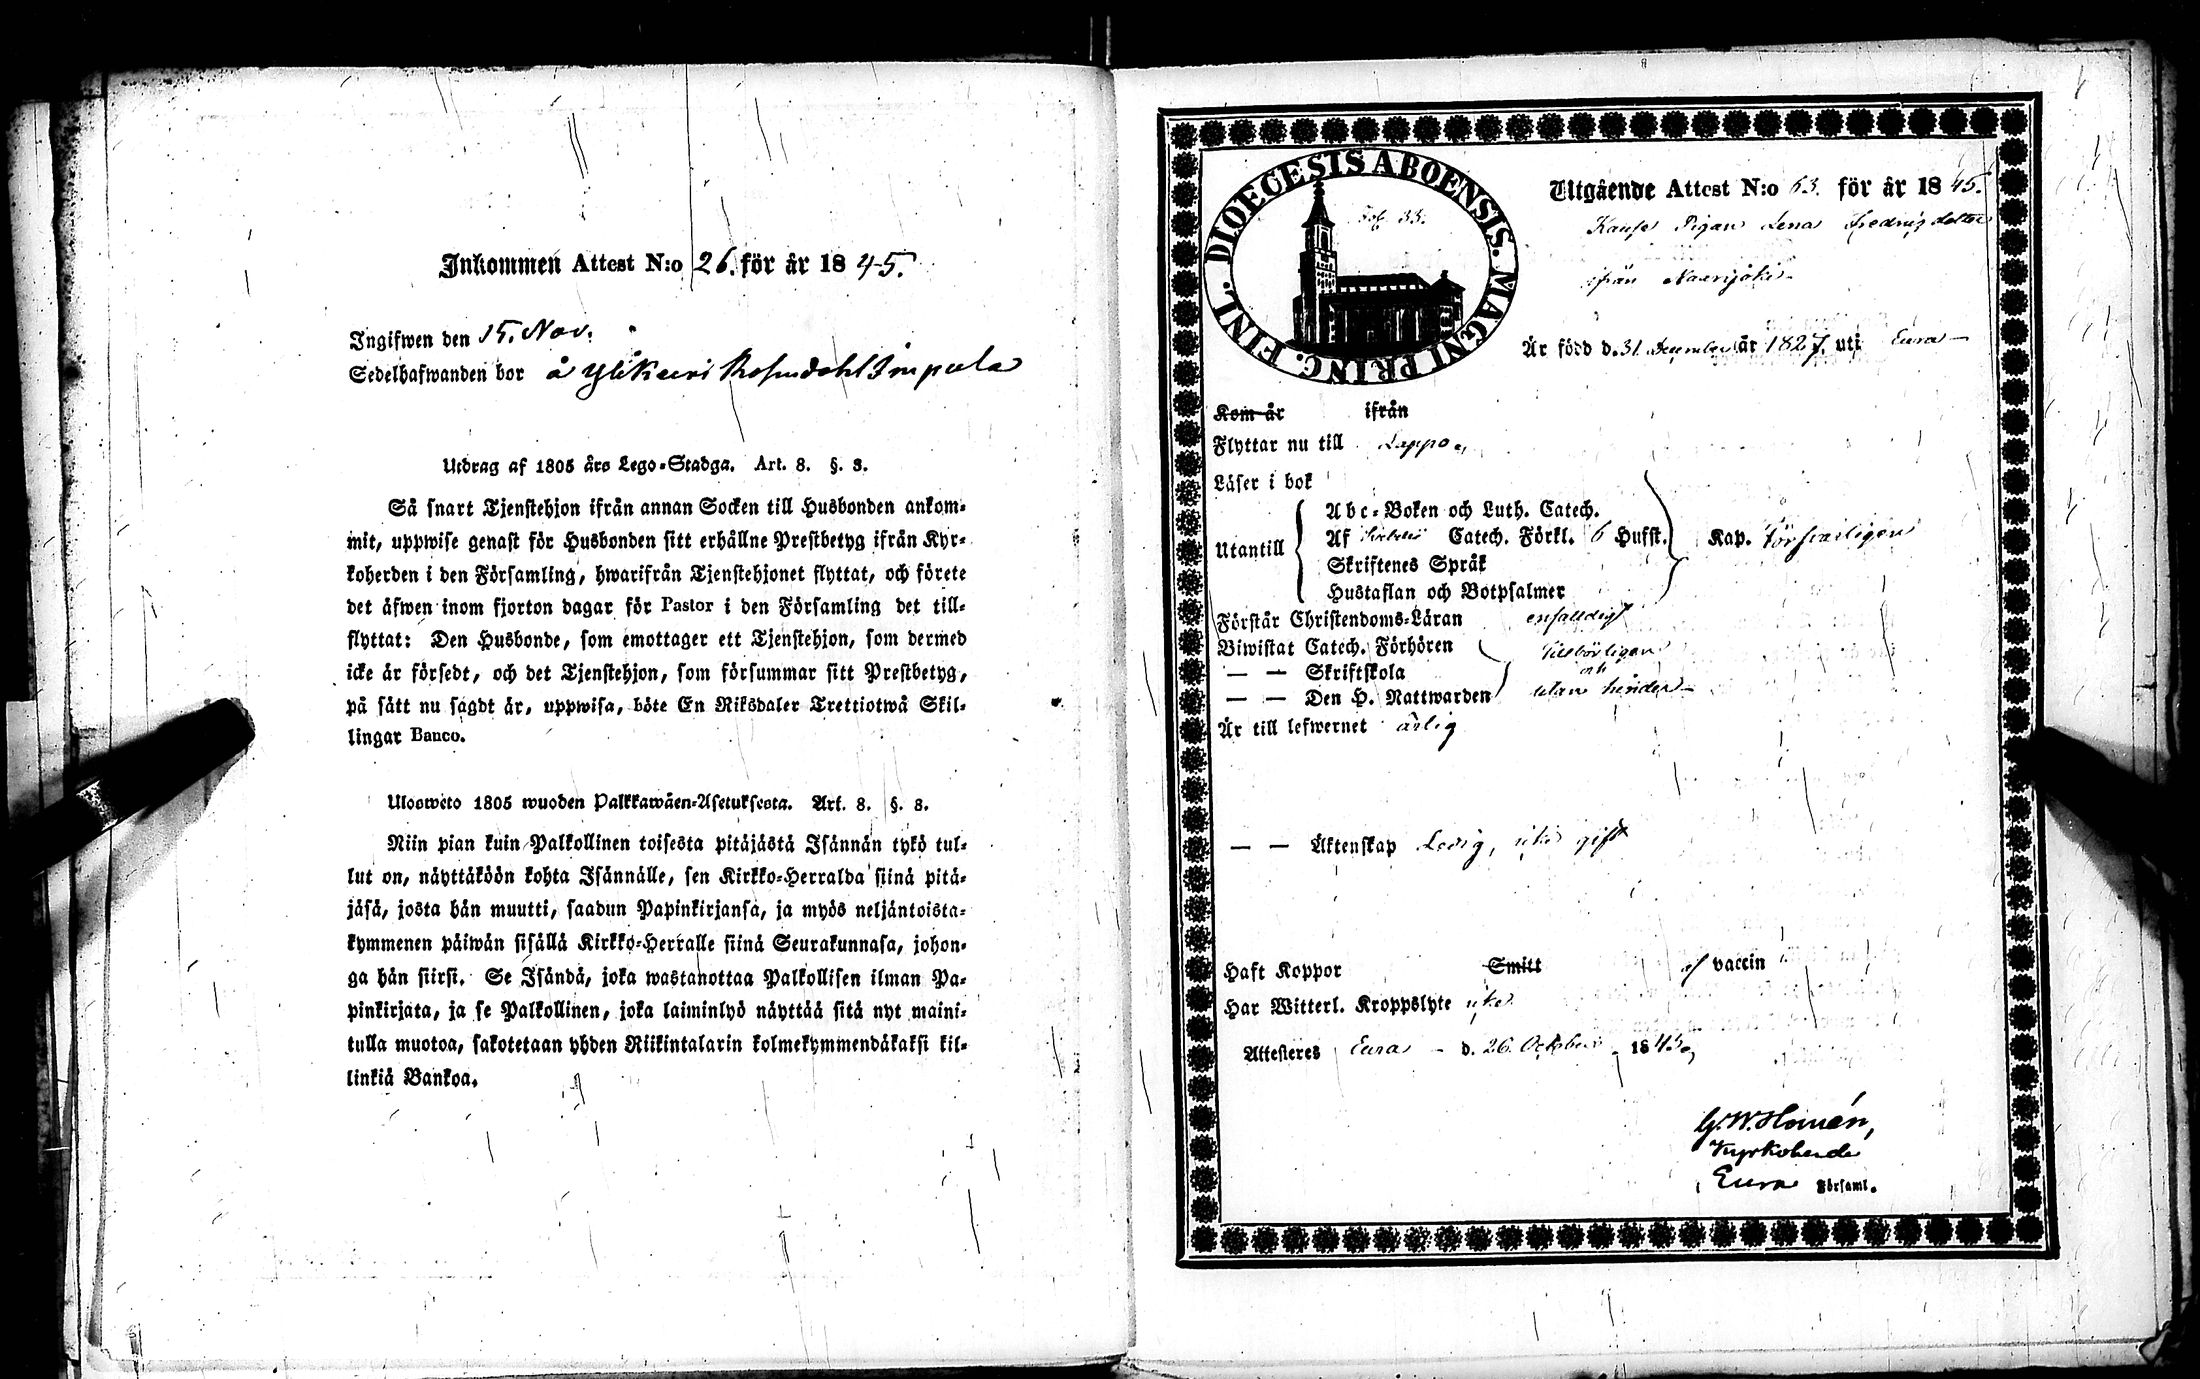 Inkommen Attest N:o 26. för år 1845.
Ingifwen den 15. Nov.
Sedelhafwanden bor å Ylikauri Rosendahl Impola
Utdrag af 1805 års Lego-Stadga. Art. 8. §. 3.
Så snart Tjenstehjon ifrån annan Socken till Husbonden ankom-
mit, uppwise genast för Husbonden sitt erhållne Prestbetyg ifrån Kyr-
koherden i den Församling, hwarifrån Tjenstehjonet flyttat, och förete
det äfwen inom fjorton dagar för Pastor i den Församling det till-
flyttat: Den Husbonde, som emottager ett Tjenstehjon, som dermed
icke är försedt, och det Tjenstehjon, som försummar sitt Prestbetyg,
på sätt nu sagdt är, uppwisa, böte En Riksdaler Trettiotwå Skil-
lingar Banco.
Ulosweto 1805 wuoden Palkkawäen-Asetuksesta. Art. 8. §. 3.
Niin pian kuin Palkollinen toisesta pitäjästä Isännän tykö tul-
lut on, näyttäköön kohta Isännälle, sen Kirkko-Herralda siinä pitä-
jäsä, josta hän muutti, saadun Papinkirjansa, ja myös neljäntoista-
kymmenen päiwän sisällä Kirkko-Herralle siinä Seurakunnasa, johon-
ga hän siirsi. Se Isändä, joka wastanottaa Palkollisen ilman Pa-
pinkirjata, ja se Palkollinen, joka laiminlyö näyttää sitä nyt maini-
tulla muotoa, sakotetaan yhden Riikintalarin kolmekymmendäkaksi kil-
linkiä Bankoa.
DIOECESIS ABOENSIS. MAGNI PRINC. FINL.
Fol. 33.
Utgående Attest N:o 63. för år 1845.
Pigan Lena Fredriksdotter
ifrån Naurijoki
Är född d. 31 December år 1827. uti Eura
Kom år ifrån
Flyttar nu till Lappo
Läser i bok
Utantill
Abc-Boken och Luth. Catech.
Af Svebelii Catech. Förkl. 6 Hufst. Kap. försvarligen
Skriftenes Språk
Hustaflan och Botpsalmer
Förstår Christendoms-Läran enfaldigt
Biwistat Catech. Förhören tillbörligen
— — Skriftskola och
— — Den H. Nattwarden utan hinder
Är till lefwernet ärlig
— — Äktenskap Ledig, icke gift
Haft Koppor Smitt af vaccin
Har Witterl. Kroppslyte icke
Attesteres Eura d. 26. October 1845.
G. W. Homén,
Kyrkoherde
i Eura Församl.